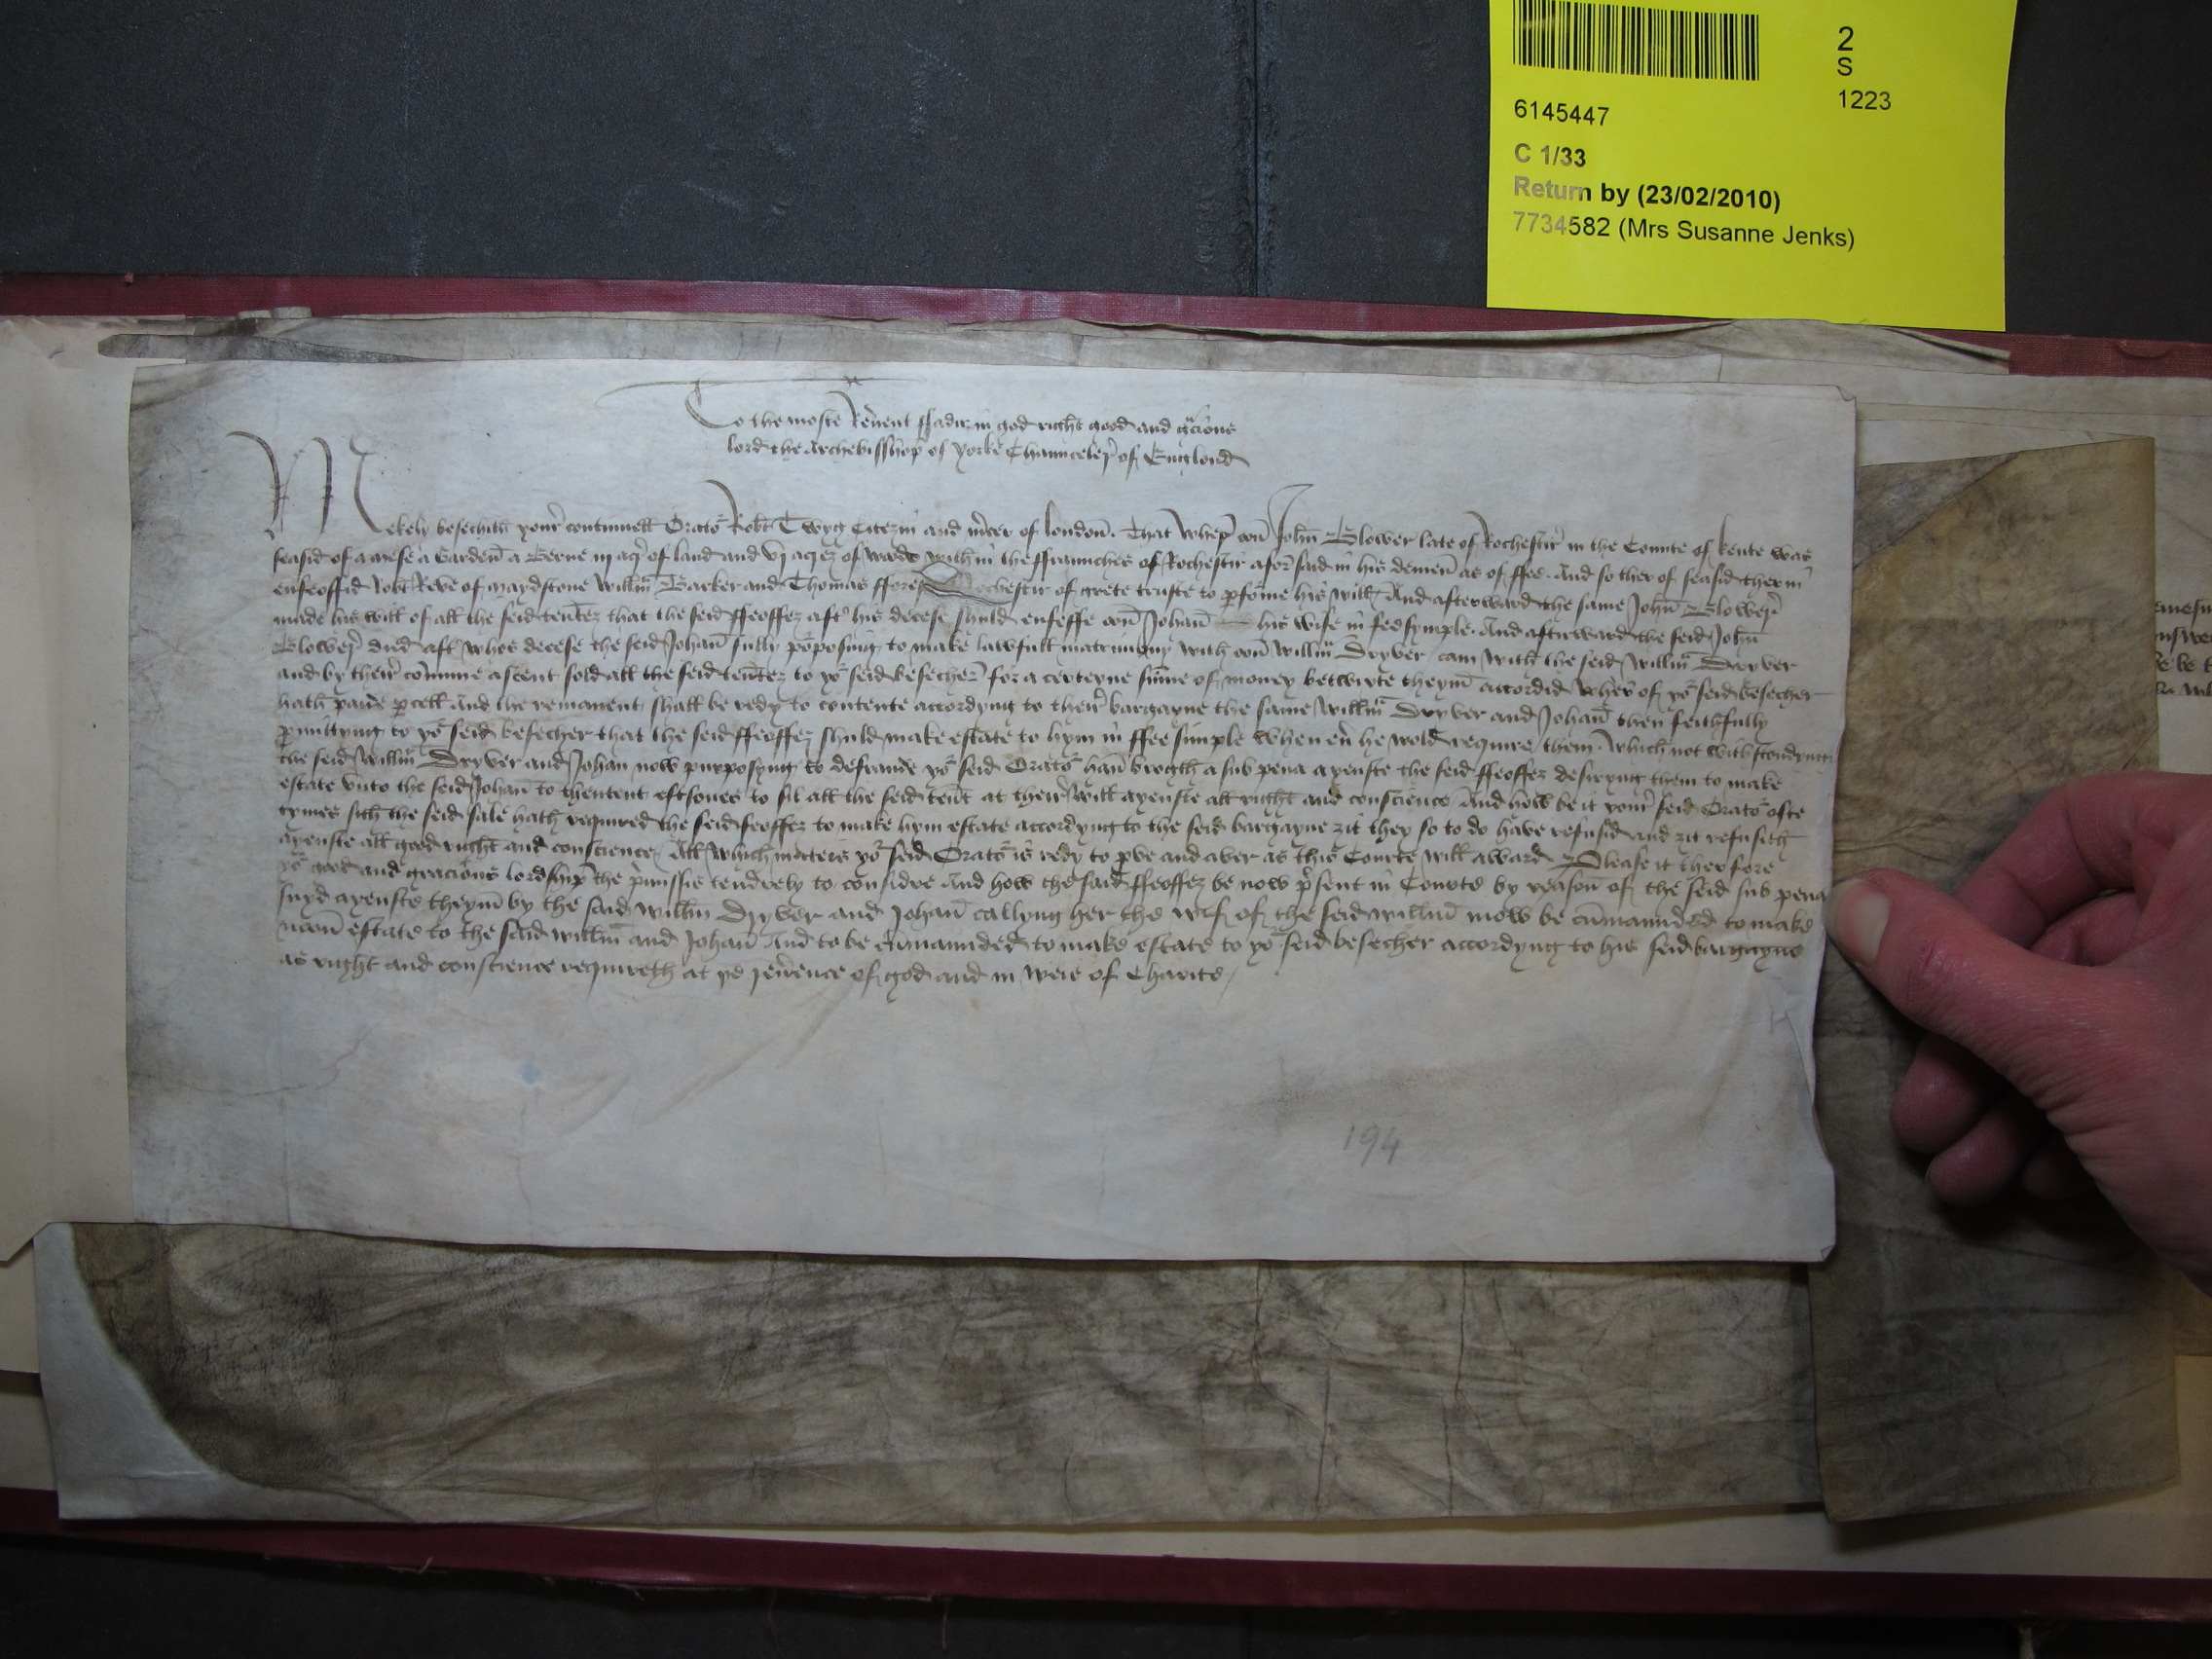 2
S
1223
6145447
C 1/33
Return by (23/02/2010)
7734582 (Mrs Susanne Jenks)
To the moste Reu'ent ffadir in god right good and g'cious
lord the Archebisshop of Yorke Chaunceler of Englond
Mekely besechith your continuell Orato' Rob't Twyg Citezin and m'cer of london. That wher oon John Blower late of Rochestir in the Counte of kente was
seasid of a mese a Garden a Berne iij acr' of land and vj acrez of wode with in the ffraunches of Rochestir afor said in his demen as of ffee. And so ther of seasid ther in
enfeoffid Rob't Reve of Maydstone Will'm Barker and Thomas ffores Rochestir of grete truste to p'forme his will. And afterward the same John Blower
made his will of all the seid ten'tez that the seid ffeoffez aft' his decese shuld enfeffe oon Johan his wife in fee symple. And aftirward the seid John
Blower died aft' whos decese the seid Johan fully p'posing to make lawfull matrimony with oon Will'm Dryver cam with the seid Will'm Dryver
and by their comune assent sold all the seid ten'tez to yo' seid besecher for a certeyne summe of money betwixte theym accordid wher of yo' seid besecher
hath paide p'cell And the remanent shall be redy to contente accordyng to their bargayne the same Will'm Dryver and Johan then feithfully
p'mittyng to yo' seid besecher that the seid ffeoffez shuld make estate to hym in ffee simple when eu' he wold require them. Which not withstondyng
the seid Will'm Dryver and Johan now purposyng to defraude yo' seid Orato' han brogth a sub pena ayenste the seid ffeoffez desiryng them to make
estate vnto the seid Johan to thentent eftsones to sil all the seid ten't at their will ayenste all right and conscience And how be it your seid Orato' ofte
tymes sith the seid sale hath required the seid feoffez to make hym estate accordyng to the seid bargayne zit they so to do have refusid and zit refusith
ayenste all good right and conscience. All which maters yo' seid Orato' is redy to p've and aver as this Courte will award Please it therfore
yo' good and gracious lordship the p'missis tendrely to considre And how the said ffeoffez be now p'sent in Courte by reason of the seid sub pena
suyd ayenste theym by the said Will'm Dryver and Johan callyng her the wif of the seid will'm mow be comaunded to make
noon estate to the said will'm and Johan And to be comaunded to make estate to yo' seid besecher accordyng to his seid bargayne
as right and conscience requireth at ye reu'ence of god and in weie of Charite
194